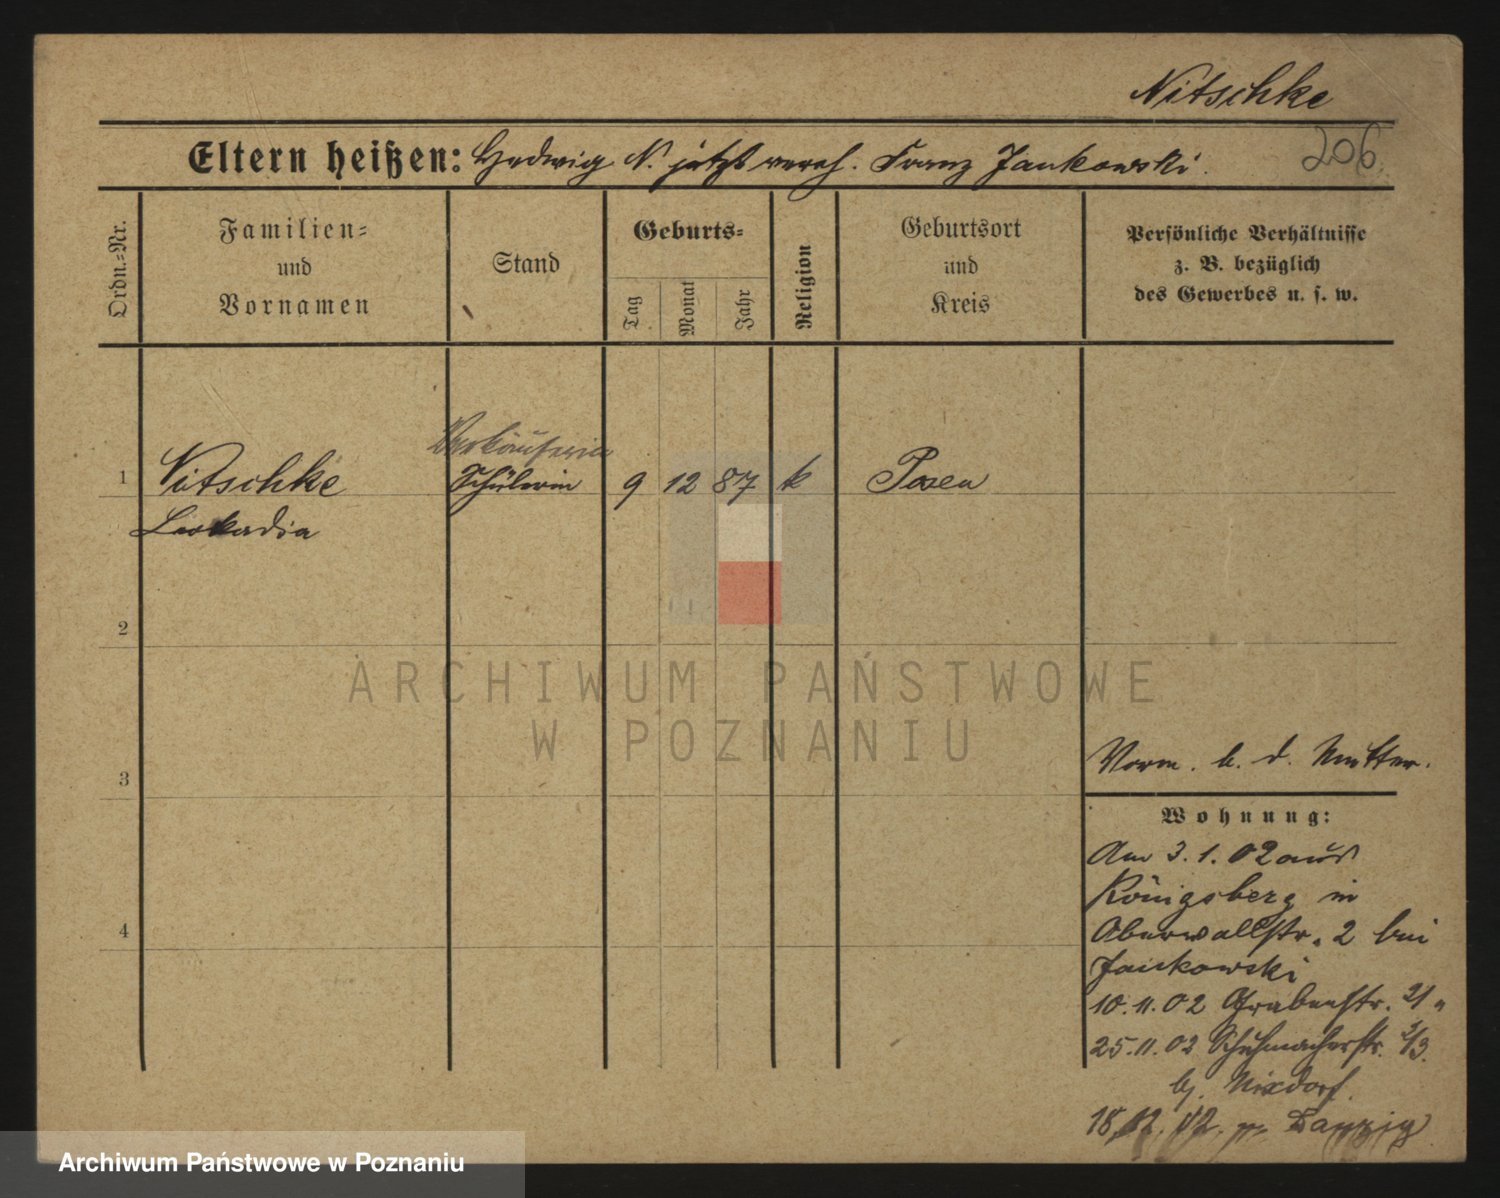 Nitschke
206.
Eltern heißen: Hedwig N. jetzt vereh. Franz Jankowski.
Ordn.-Nr.
Familien-
und
Vornamen
Stand
Geburts-
Tag
Monat
Jahr
Religion
Geburtsort
und
Kreis
Persönliche Verhältnisse
z. B. bezüglich
des Gewerbes u. s. w.
Verkäuferin
1 Nitschke Schülerin 9 12 87 k Posen
Leokadia
2
3
4
Vorm. b. d. Mutter.
Wohnung:
Am 3.1.02 aus
Königsberg in
Oberwallstr. 2 bei
Jankowski
10.11.02 Grabenstr. 21
25.11.02 Schuhmacherstr. 2/3.
bj. Nixdorf.
18.12.02. n. Danzig
ARCHIWUM PAŃSTWOWE
W POZNANIU
Archiwum Państwowe w Poznaniu